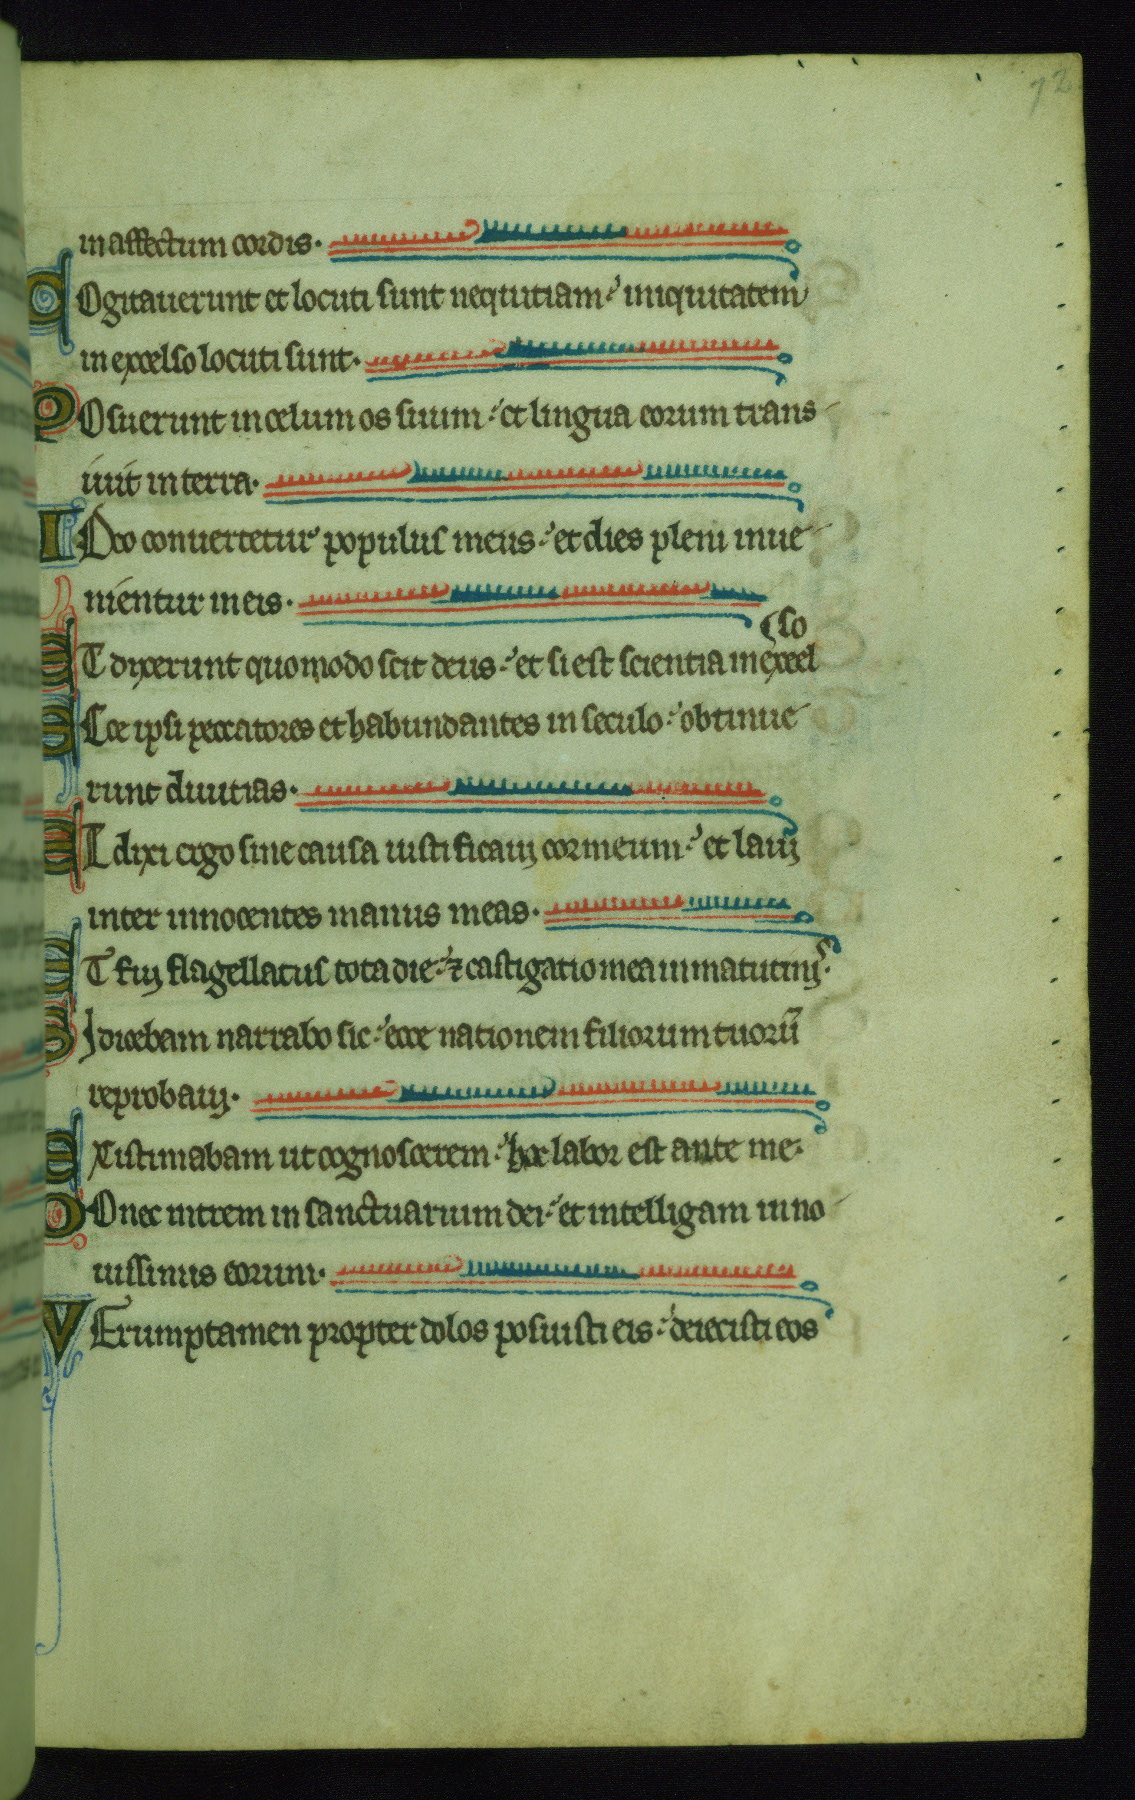 72
in affectum cordis.
Cogitauerunt et locuti sunt nequitiam: iniquitatem
in excelso locuti sunt.
Posuerunt in celum os suum: et lingua eorum trans
iuit in terra.
Ideo conuertetur populus meus: et dies pleni inue
nientur in eis.
so
Et dixerunt quomodo scit deus: et si est scientia in excel
Ecce ipsi peccatores et habundantes in seculo: obtinue
runt diuitias.
Et dixi ergo sine causa iustificaui cor meum: et laui
inter innocentes manus meas.
Et fui flagellatus tota die: ⁊ castigatio mea in matutinis.
Si dicebam narrabo sic: ecce nationem filiorum tuorū
reprobaui.
Existimabam ut cognoscerem: hoc labor est ante me.
Donec intrem in sanctuarium dei: et intelligam in no
uissimis eorum.
Verumptamen propter dolos posuisti eis: deiecisti eos